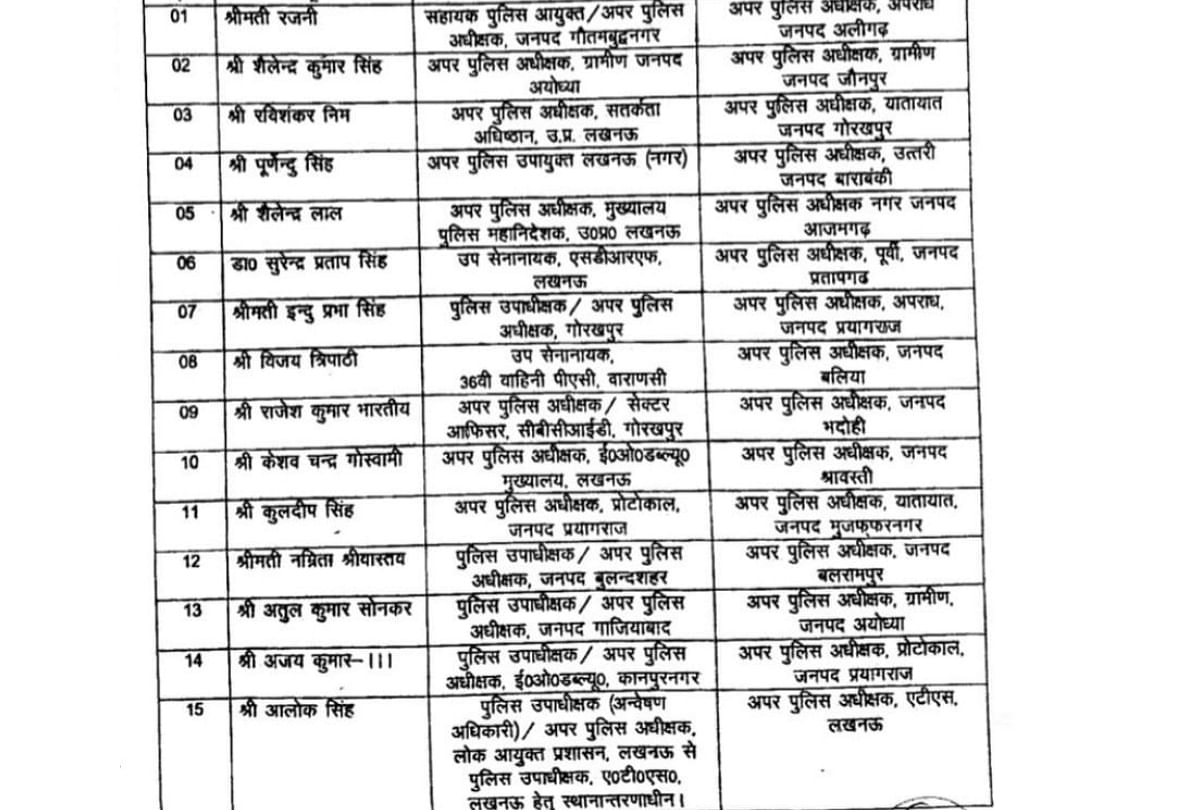 01 श्रीमती रजनी सहायक पुलिस आयुक्त/अपर पुलिस अपर पुलिस अधीक्षक, अपराध
अधीक्षक, जनपद गौतमबुद्धनगर जनपद अलीगढ़
02 श्री शैलेन्द्र कुमार सिंह अपर पुलिस अधीक्षक, ग्रामीण जनपद अपर पुलिस अधीक्षक, ग्रामीण
अयोध्या जनपद जौनपुर
03 श्री रविशंकर निम अपर पुलिस अधीक्षक, सतर्कता अपर पुलिस अधीक्षक, यातायात
अधिष्ठान, उ.प्र. लखनऊ जनपद गोरखपुर
04 श्री पूर्णेन्दु सिंह अपर पुलिस उपायुक्त लखनऊ (नगर) अपर पुलिस अधीक्षक, उत्तरी
जनपद बाराबंकी
05 श्री शैलेन्द्र लाल अपर पुलिस अधीक्षक, मुख्यालय अपर पुलिस अधीक्षक नगर जनपद
पुलिस महानिदेशक, उ0प्र0 लखनऊ आजमगढ़
06 डा0 सुरेन्द्र प्रताप सिंह उप सेनानायक, एसडीआरएफ, अपर पुलिस अधीक्षक, पूर्वी, जनपद
लखनऊ प्रतापगढ
07 श्रीमती इन्दु प्रभा सिंह पुलिस उपाधीक्षक/ अपर पुलिस अपर पुलिस अधीक्षक, अपराध,
अधीक्षक, गोरखपुर जनपद प्रयागराज
08 श्री विजय त्रिपाठी उप सेनानायक, अपर पुलिस अधीक्षक, जनपद
36वी वाहिनी पीएसी, वाराणसी बलिया
09 श्री राजेश कुमार भारतीय अपर पुलिस अधीक्षक/ सेक्टर अपर पुलिस अधीक्षक, जनपद
आफिसर, सीबीसीआईडी, गोरखपुर भदोही
10 श्री केशव चन्द्र गोस्वामी अपर पुलिस अधीक्षक, ई0ओ0डब्ल्यू0 अपर पुलिस अधीक्षक, जनपद
मुख्यालय, लखनऊ श्रावस्ती
11 श्री कुलदीप सिंह अपर पुलिस अधीक्षक, प्रोटोकाल, अपर पुलिस अधीक्षक, यातायात,
जनपद प्रयागराज जनपद मुजफ्फरनगर
12 श्रीमती नम्रिता श्रीवास्तव पुलिस उपाधीक्षक/ अपर पुलिस अपर पुलिस अधीक्षक, जनपद
अधीक्षक, जनपद बुलन्दशहर बलरामपुर
13 श्री अतुल कुमार सोनकर पुलिस उपाधीक्षक/ अपर पुलिस अपर पुलिस अधीक्षक, ग्रामीण,
अधीक्षक, जनपद गाजियाबाद जनपद अयोध्या
14 श्री अजय कुमार-।।। पुलिस उपाधीक्षक/ अपर पुलिस अपर पुलिस अधीक्षक, प्रोटोकाल,
अधीक्षक, ई0ओ0डब्ल्यू0, कानपुरनगर जनपद प्रयागराज
15 श्री आलोक सिंह पुलिस उपाधीक्षक (अन्वेषण अपर पुलिस अधीक्षक, एटीएस,
अधिकारी)/ अपर पुलिस अधीक्षक, लखनऊ
लोक आयुक्त प्रशासन, लखनऊ से
पुलिस उपाधीक्षक, ए0टी0एस0,
लखनऊ हेतु स्थानान्तरणाधीन।